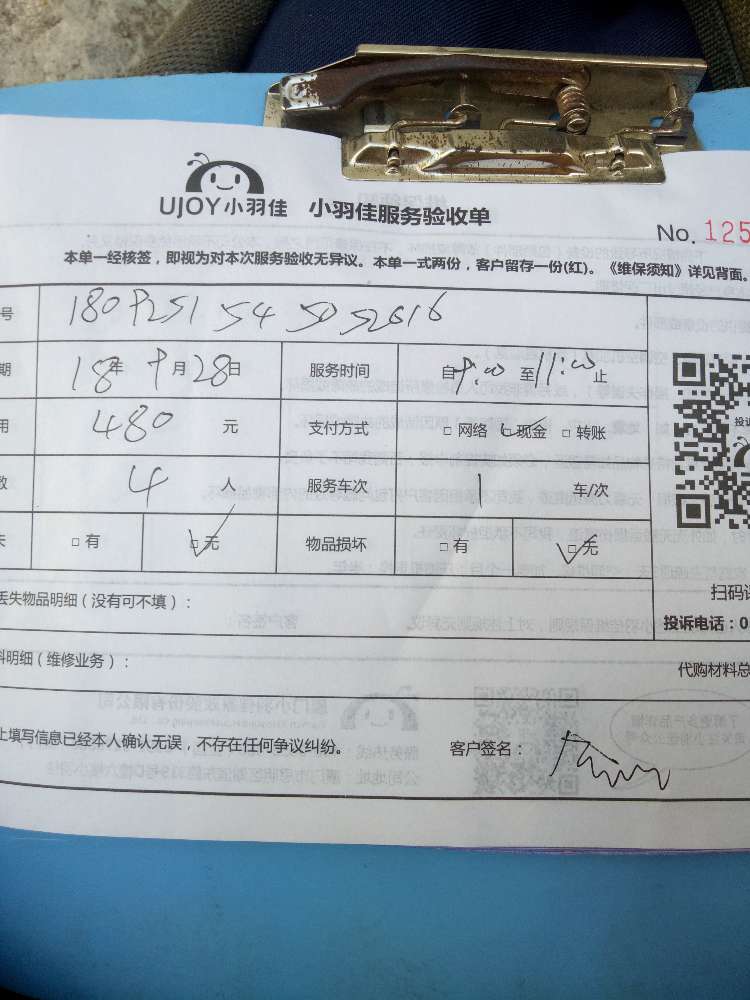 UJOY小羽佳 小羽佳服务验收单
No. 125
本单一经核签，即视为对本次服务验收无异议。本单一式两份，客户留存一份(红)。《维保须知》详见背面。
号
期 18年 9月28日 服务时间 自9:00至11:00止
用 480 元 支付方式 □ 网络 □ 现金 □ 转账
数 4 人 服务车次 1 车/次
失 □ 有 □ 无 物品损坏 □ 有 □ 无
扫码
丢失物品明细（没有可不填）：
投诉电话：0
料明细（维修业务）：
代购材料总
上填写信息已经本人确认无误，不存在任何争议纠纷。 客户签名：